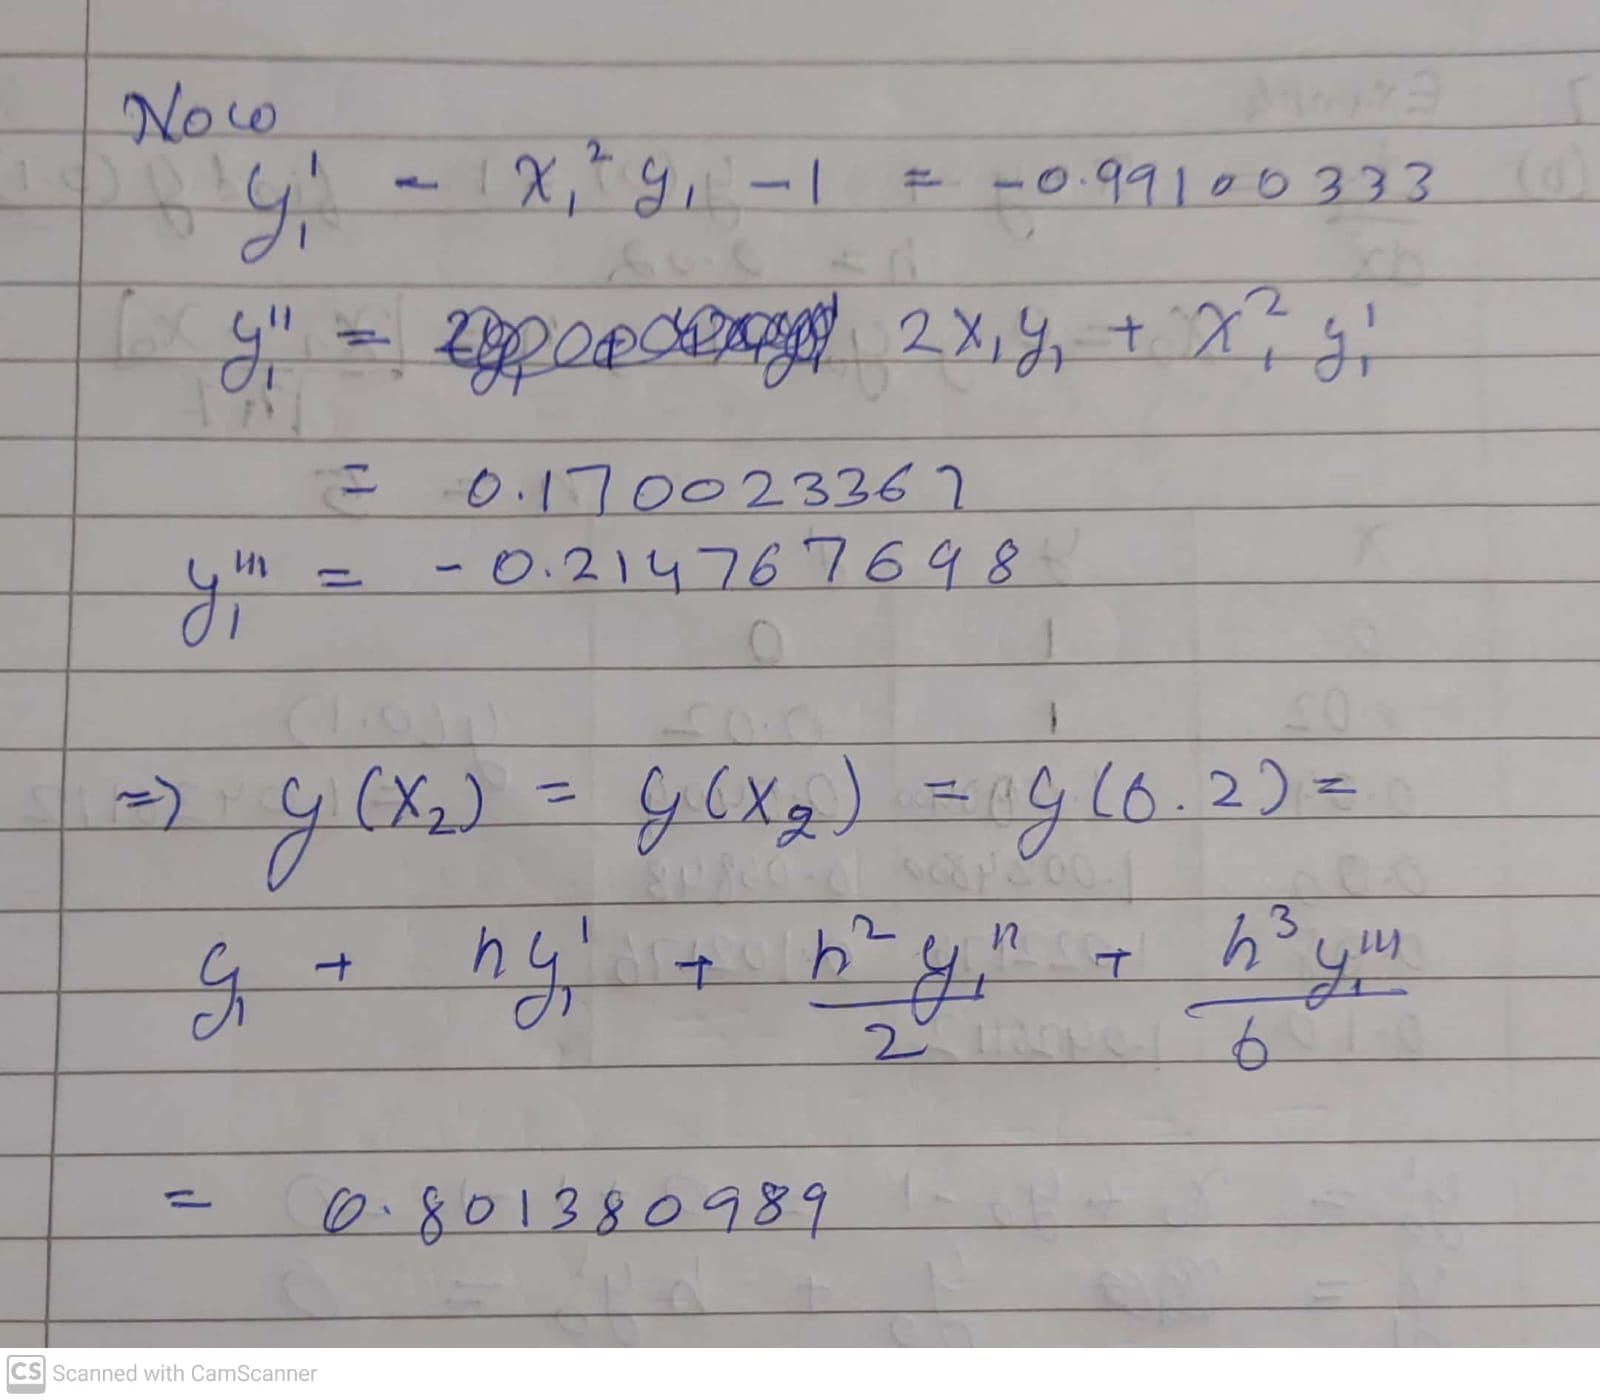 Now
y₁' = x₁² y₁ - 1 = -0.99100333
y₁'' = 2x₁y₁ + x₁² y₁'
= 0.170023367
y₁''' = -0.214767698
=> y(x₂) = y(x₂) = y(0.2) =
y₁ + hy₁' + h²y₁''/2 + h³y₁'''/6
= 0.801380989
CS Scanned with CamScanner